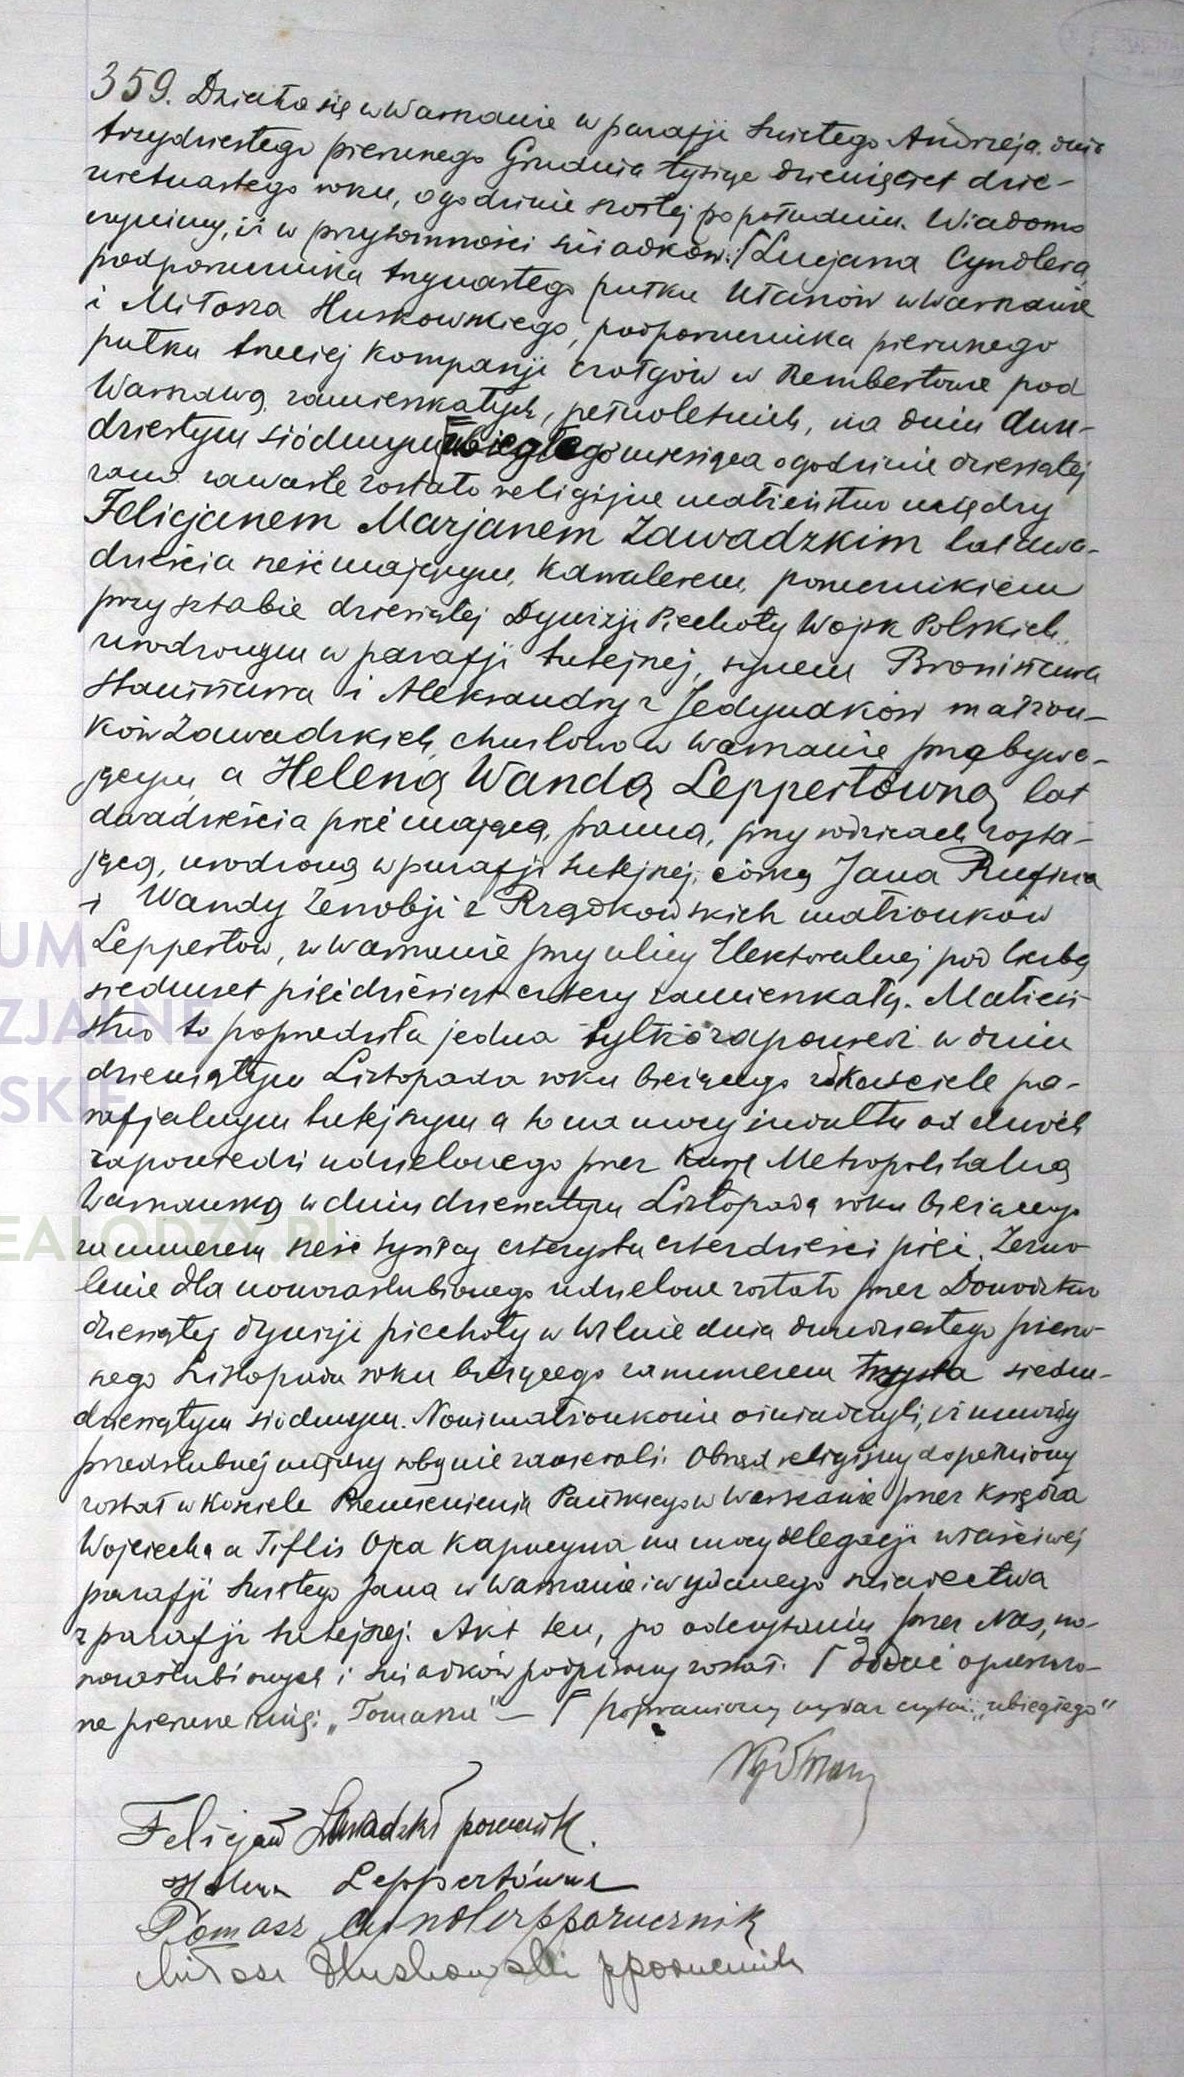 359. Działo się w Warszawie w parafji Świętego Andrzeja dnia
trzydziestego pierwszego Grudnia tysiąc dziewięćset dzie-
więtnastego roku, o godzinie szóstej po południu. Wiadomo
czynimy, iż w przytomności świadków: ⌈Lucjana Cyndlera
podporucznika trzynastego pułku Ułanów w Warszawie
i Miłosza Huskowskiego, podporucznika pierwszego
pułku trzeciej Kompanji czołgów w Rembertowie pod
Warszawą zamieszkałych, pełnoletnich, na dniu dwu-
dziestym siódmym ⌈ubiegłego miesiąca o godzinie dziesiątej
rano zawarte zostało religijne małżeństwo między
Felicjanem Marjanem Zawadzkim lat dwa-
dzieścia sześć mającym, Kawalerem, porucznikiem
przy sztabie dziesiątej Dywizji Piechoty Wojsk Polskich,
urodzonym w parafji tutejszej, synem Bronisława
Stanisława i Aleksandry z Jedynaków małżon-
ków Zawadzkich, chwilowo w Warszawie przebywa-
jącym, a Heleną Wandą Leppertówną lat
dwadzieścia pięć mającą, panną, przy rodzicach zosta-
jącą, urodzoną w parafji tutejszej, córką Jana Rufina
i Wandy Zenobji z Rządkowskich małżonków
Leppertów, w Warszawie przy ulicy Elektoralnej pod liczbą
siedmset pięćdziesiąt cztery zamieszkałą. Małżeń-
stwo to poprzedziła jedna tylko zapowiedź w dniu
dziewiątym Listopada roku bieżącego w Kościele pa-
rafjalnym tutejszym a to na mocy indultu od dwóch
zapowiedzi udzielonego przez Kurję Metropolitalną
Warszawską w dniu dziesiątym Listopada roku bieżącego
za numerem sześć tysięcy czterysta czterdzieści pięć. Zezwo-
lenie dla nowozaślubionego udzielone zostało przez Dowództwo
dziesiątej dywizji piechoty w Wilnie dnia dwudziestego pierw-
szego Listopada roku bieżącego za numerem trzysta siedm-
dziesiątym siódmym. Nowi małżonkowie oświadczyli, iż umowy
przedślubnej między sobą nie zawierali. Obrzęd religijny dopełniony
został w Kościele Przemienienia Pańskiego w Warszawie przez Księdza
Wojciecha a Tiflis Ojca Kapucyna na mocy delegacji właściwej
parafji Świętego Jana w Warszawie i wydanego świadectwa
z parafji tutejszej. Akt ten, po odczytaniu przez Nas, no-
wozaślubionych i świadków podpisany został. ⌈ dodać opuszczo-
ne pierwsze imię: „Tomasza" — ⌈ poprawiony wyraz czytać: „ubiegłego"
Felicjan Zawadzki porucznik.
Helena Leppertówna
Tomasz Cyndler pporucznik
Miłosz Huskowski pporucznik
UM
ZJALNE
SKIE
EALODZY.PL